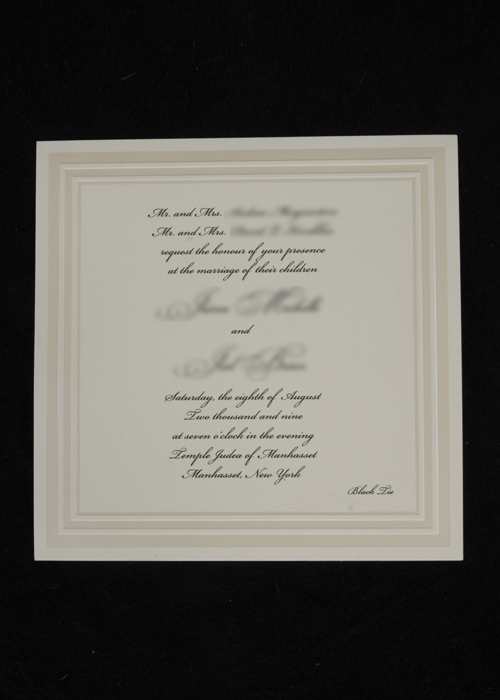 Mr. and Mrs.
Mr. and Mrs.
request the honour of your presence
at the marriage of their children
and
Saturday, the eighth of August
Two thousand and nine
at seven o'clock in the evening
Temple Judea of Manhasset
Manhasset, New York
Black Tie